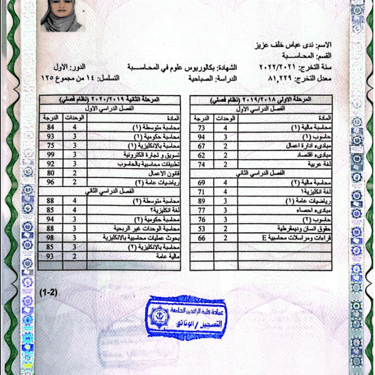 الاسم: ندى عباس خلف عزيز
القسم: المحاسبة
سنة التخرج: ٢٠٢٢/٢٠٢١ الشهادة: بكالوريوس علوم في المحاسبة الدور: الاول
معدل التخرج: ٨١,٢٢٩ الدراسة: الصباحية التسلسل: ١٤ من مجموع ١٢٥
المرحلة الاولى ٢٠١٩/٢٠١٨ (نظام فصلي)
الفصل الدراسي الاول
المادة الوحدات الدرجة
محاسبة مالية (١) 4 73
حاسوب (١) 3 94
مبادىء ادارة اعمال 2 67
مبادىء اقتصاد 2 62
لغة عربية 2 74
الفصل الدراسي الثاني
محاسبة مالية (٢) 4 69
لغة انكليزية١ 4 71
رياضيات عامة (١) 3 89
مبادىء احصاء 3 77
حاسوب (٢) 3 76
حقوق انسان وديمقرطية 2 53
قراءات ومراسلات محاسبية E 2 66
المرحلة الثانية ٢٠٢٠/٢٠١٩ (نظام فصلي)
الفصل الدراسي الاول
المادة الوحدات الدرجة
محاسبة متوسطة (١) 4 84
محاسبة حكومية (١) 3 93
محاسبة بالانكليزية (١) 3 75
تسويق و تجارة الكترونية 2 99
تطبيقات محاسبية بالحاسوب 3 93
قانون الاعمال 2 80
رياضيات عامة (٢) 2 96
الفصل الدراسي الثاني
محاسبة متوسطة (٢) 4 88
لغة انكليزية٢ 4 85
محاسبة حكومية (٢) 3 94
محاسبة الوحدات غير الربحية 3 88
بحوث عمليات محاسبية بالانكليزية 3 98
محاسبة بالانكليزية (٢) 3 85
مالية عامة 2 93
(1-2)
عمادة كلية الرافدين الجامعة
التسجيل / الوثائق